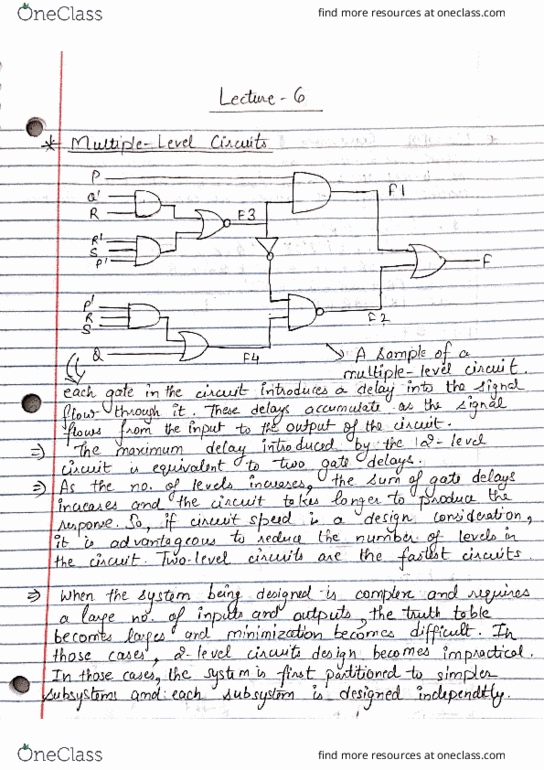 OneClass
find more resources at oneclass.com
Lecture - 6
* Multiple-Level Circuits
P
Q'
R
F3
F1
R'
S
P'
F
P'
R
S
F2
Q
F4
→ A sample of a
multiple-level circuit.
each gate in the circuit introduces a delay into the signal
flow through it. These delays accumulate as the signal
flows from the input to the output of the circuit.
⇒) The maximum delay introduced by the 2-level
circuit is equivalent to two gate delays.
⇒) As the no. of levels increases, the sum of gate delays
increases and the circuit takes longer to produce the
response. So, if circuit speed is a design consideration,
it is advantageous to reduce the number of levels in
the circuit. Two-level circuits are the fastest circuits
⇒ When the system being designed is complex and requires
a large no. of inputs and outputs, the truth table
becomes larges and minimization becomes difficult. In
those cases, 2-level circuits design becomes impractical.
In those cases, the system is first partitioned to simpler
subsystems and each subsystem is designed independtly.
OneClass
find more resources at oneclass.com